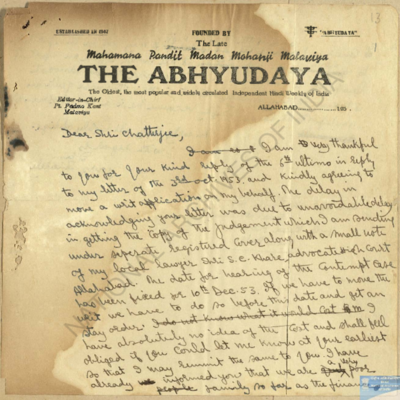 ESTABLISHED IN 1907
FOUNDED BY
"ABHYUDAYA"
13
1
The Late
Mahamana Pandit Madan Mohanji Malaviya
THE ABHYUDAYA
The Oldest, the most popular and widely circulated Independent Hindi Weekly of India
Editor-in-Chief
Pt. Padma Kant
Malaviya
ALLAHABAD 195 .
Dear Shri Chatterjee,
I am very thankful
to you for your kind reply of the 6th ultimo in reply
to my letter of the 3rd Oct 1953 and kindly agreeing to
move a writ application on my behalf. The delay in
acknowledging your letter was due to unavoidable delay
in getting the copy of the judgement which I am sending
under seperate registered cover along with a small note
of my local lawyer Shri S. C. Khare, Advocate High Court
Allahabad. The date for hearing of the Contempt Case
has been fixed for 10th Dec. 53. If we have to move the
writ we have to do so before this date and get an
stay order. I do not know what it would cost I
have absolutely no idea of the cost and shall feel
obliged if you could let me know at your earliest
so that I may remit the same to you. I have
already informed you that we are a very poor
people family so far as the finance
NATIONAL ARCHIVES OF INDIA